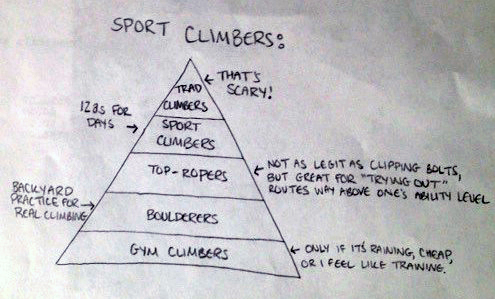 SPORT CLIMBERS:
THAT'S
SCARY!
TRAD
CLIMBERS
12Bs FOR
DAYS
SPORT
CLIMBERS
TOP-ROPERS
NOT AS LEGIT AS CLIPPING BOLTS,
BUT GREAT FOR "TRYING OUT"
ROUTES WAY ABOVE ONE'S ABILITY LEVEL
BACKYARD
PRACTICE FOR
REAL CLIMBING
BOULDERERS
GYM CLIMBERS
ONLY IF IT'S RAINING, CHEAP,
OR I FEEL LIKE TRAINING.